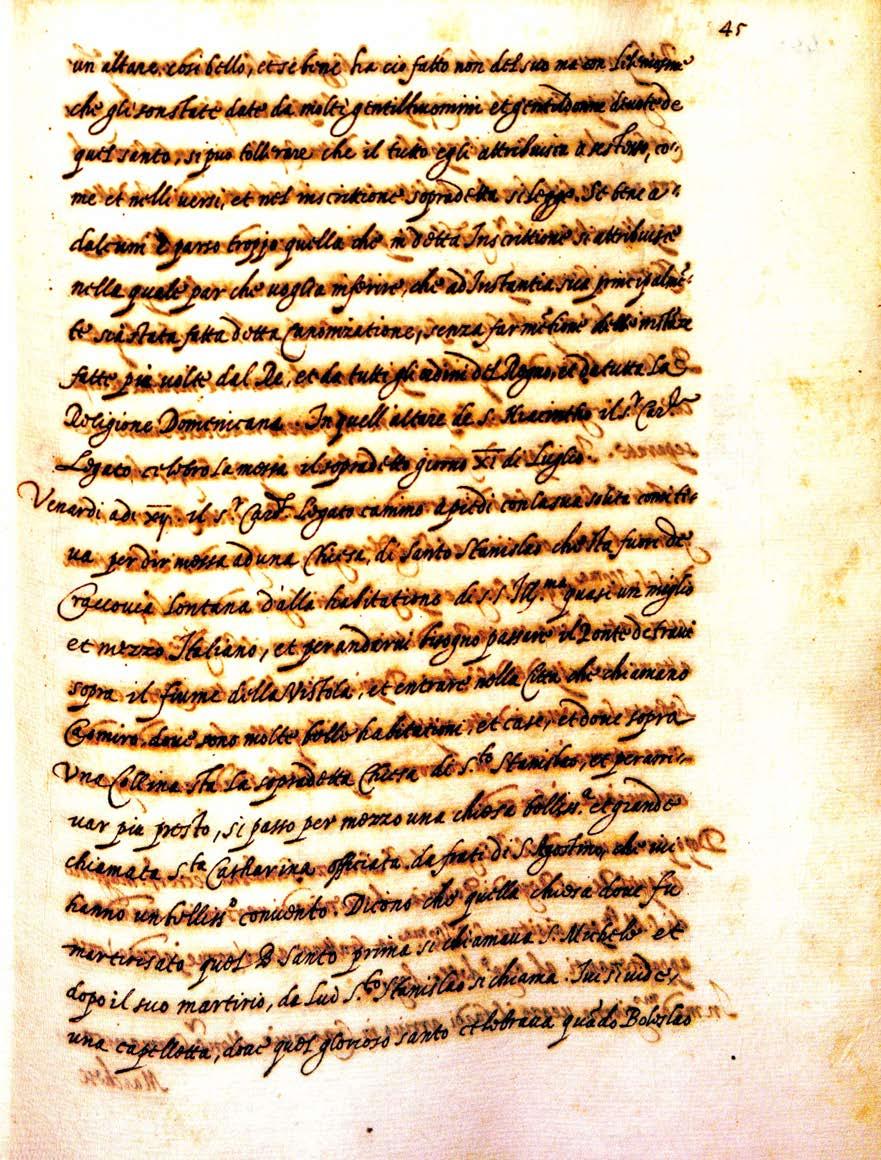 45
un altare, così bello, et se bene ha cio fatto non del suo ma con l'elemosine
che gli son state date da molti gentilhuomini et gentildonne devote de
quel santo, si puo tollerare che il tutto egli attribuisca a se stesso, co-
me et nelli versi, et nel inscrittione sopradetta si legge. Se bene a
dalcuni è parso troppo quella che in detta Inscrittione si attribuisce
nella quale par che voglia inferire, che ad Instantia sua principalmē-
te sia stata fatta detta Canonizatione, senza far mētione delle instāze
fatte piu volte dal Re, et da tutti gli ordini del Regno, et da tutta la
Religione Domenicana. In quell altare de S. Hiacintho il s.r Car.le
Legato celebro la messa il sopradetto giorno XI de Luglio.
Venardi adi xij. il s.r Card. Legato camino a piedi con la sua solita comiti-
va per dir messa ad una Chiesa, di Santo Stanislao che sta fuori de
Craccovia lontana dalla habitatione di s.s. Ill.ma quasi un miglio
et mezzo Italiano, et per andarvi bisogno passare il Ponte de travi
sopra il fiume della Vistola, et entrare nella Citta che chiamano
Casmiro, dove sono molte belle habitationi, et case, et dove sopra
Una Collina sta la sopradetta Chiesa di S.to Stanislao, et per arri-
var piu presto, si passo per mezzo una chiesa belliss.a et grande
chiamata S.ta Catharina officiata da frati di S. Agostino, che ivi
hanno un belliss.o convento. Dicono che quella chiesa dove fu
martirisato quel B Santo prima si chiamava S. Michele et
dopo il suo martirio, da lui S.to Stanislao si chiama. Ivi si vide
una capelletta, dove quel glorioso santo celebrava quādo Boleslao